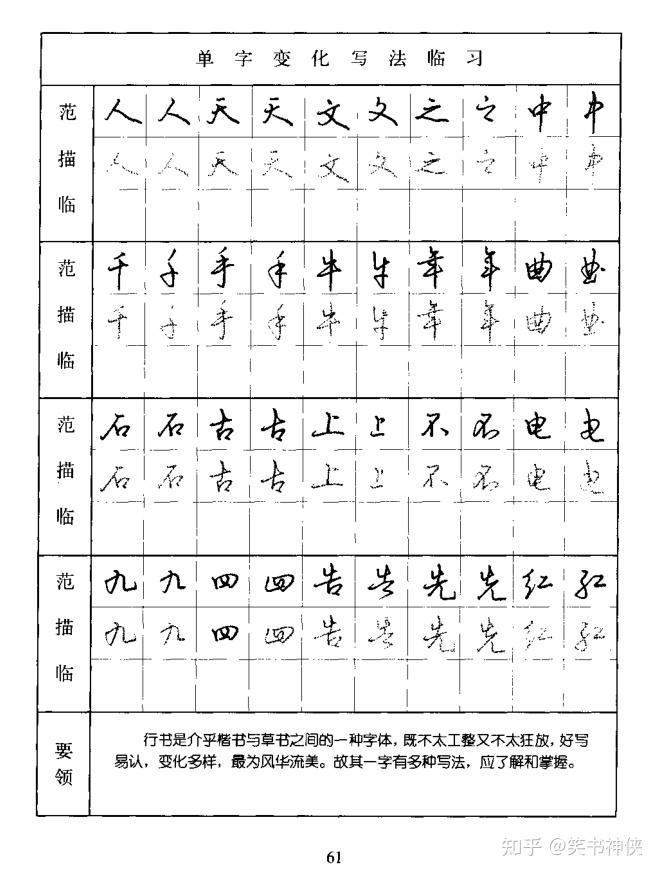 单字变化写法临习
范 人 人 天 天 文 文 之 之 中 中
描 人 人 天 天 文 文 之 之 中 中
临
范 千 千 手 手 牛 牛 年 年 曲 曲
描 千 千 手 手 牛 牛 年 年 曲 曲
临
范 石 石 古 古 上 上 不 不 电 电
描 石 石 古 古 上 上 不 不 电 电
临
范 九 九 四 四 告 告 先 先 红 红
描 九 九 四 四 告 告 先 先 红 红
临
要领
行书是介乎楷书与草书之间的一种字体，既不太工整又不太狂放，好写
易认，变化多样，最为风华流美。故其一字有多种写法，应了解和掌握。
61
知乎 @笑书神侠